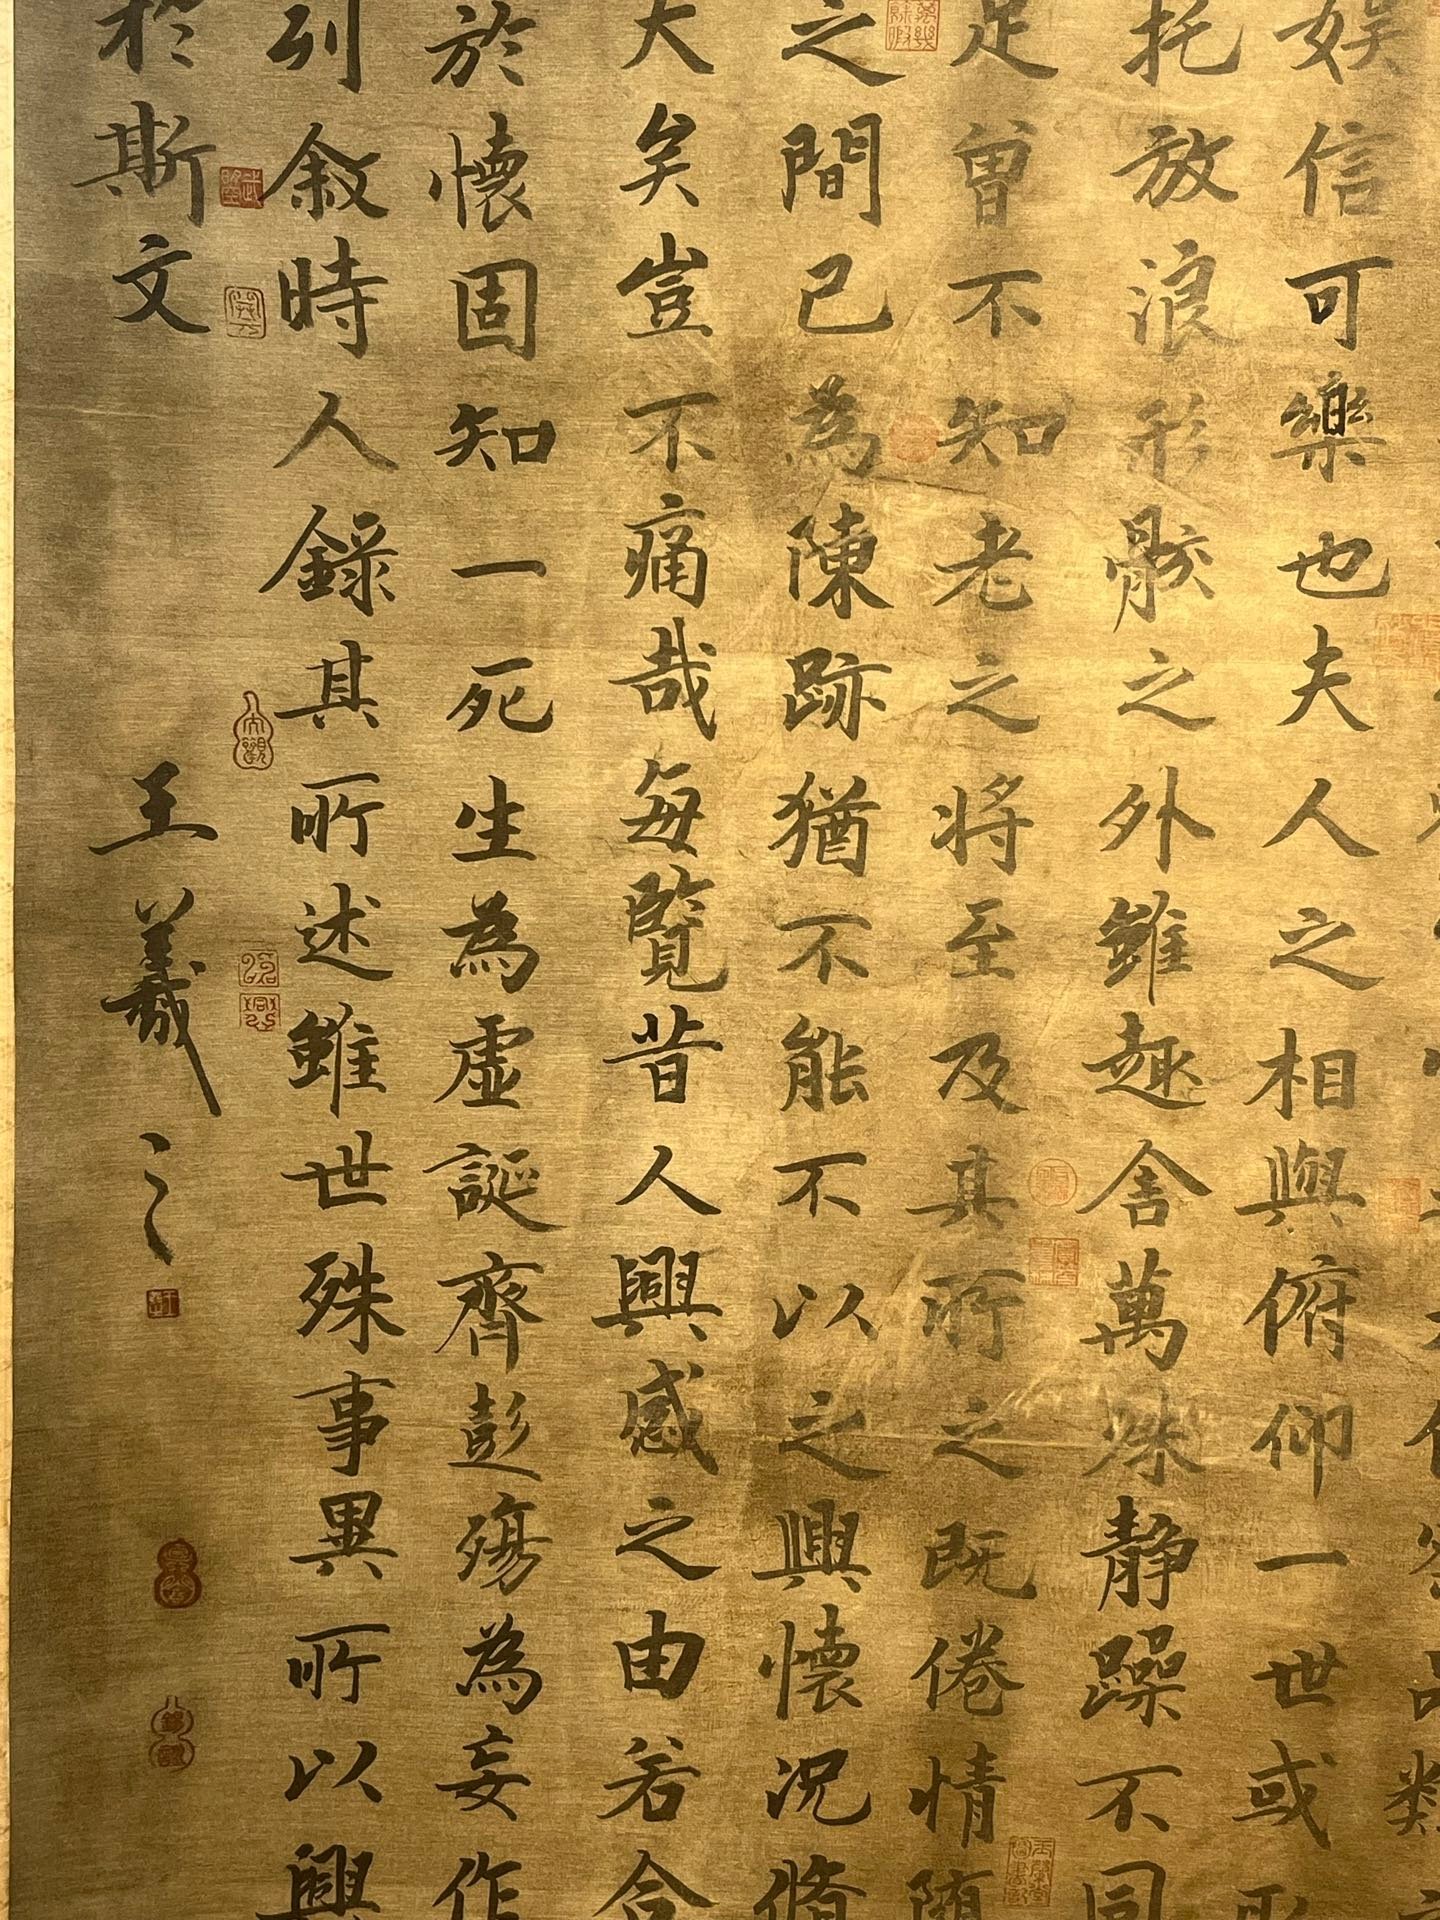 娱信可樂也夫人之相與俯仰一世或
托放浪形骸之外雖趣舍萬殊静躁不同
足曾不知老之将至及其所之既倦情
之間已為陳跡猶不能不以之興懷况脩
大矣豈不痛哉每覽昔人興感之由若合
於懷固知一死生為虛誕齊彭殤為妄作
列敘時人錄其所述雖世殊事異所以興
於斯文
王羲之